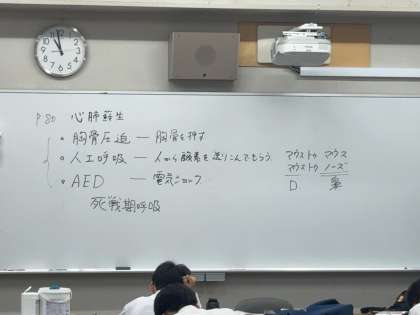 P.80 心肺蘇生
・胸骨圧迫 — 胸骨を押す
・人工呼吸 — 人から酸素を送りこんでもらう
マウストゥ マウス
マウストゥ ノーズ
・AED — 電気ショック
D 鼻
死戦期呼吸